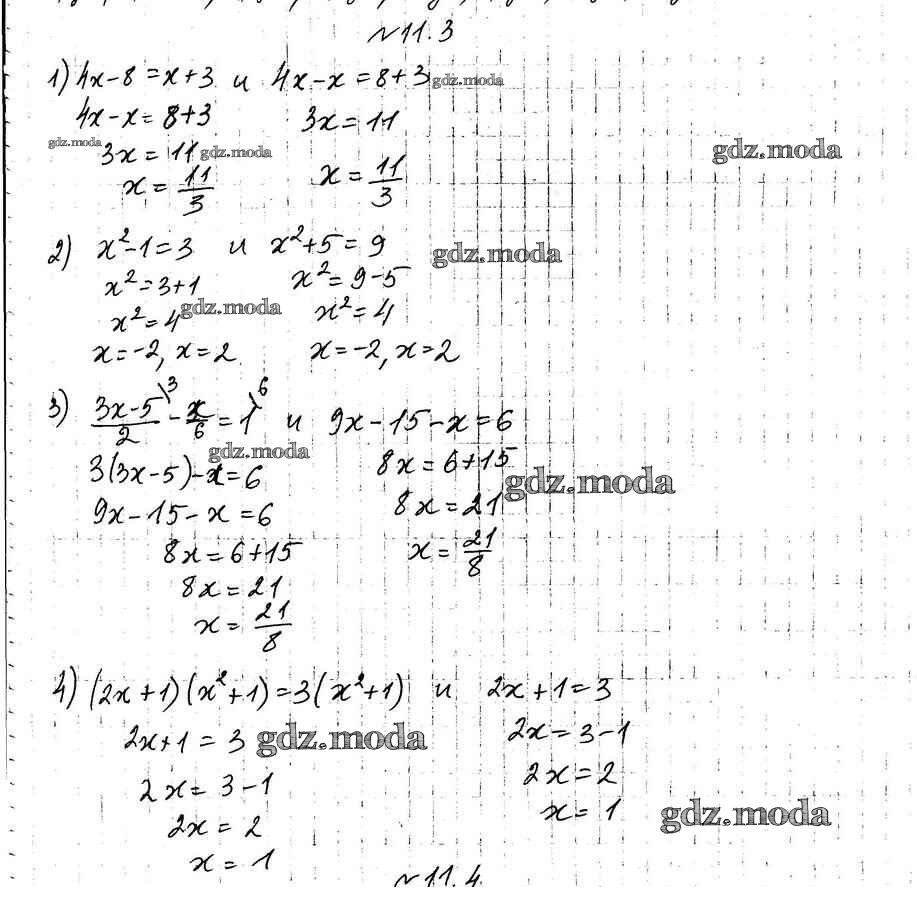 №11.3
1) 4x-8=x+3 и 4x-x=8+3 gdz.moda
4x-x=8+3 3x=11
gdz.moda 3x=11 gdz.moda gdz.moda
x=11/3 x=11/3
2) x²-1=3 и x²+5=9 gdz.moda
x²=3+1 x²=9-5
x²=4 gdz.moda x²=4
x=-2, x=2 x=-2, x=2
3) (3x-5)/2 \3 - x/6 = 1 \6 и 9x-15-x=6
gdz.moda
3(3x-5)-x=6 8x=6+15
gdz.moda
9x-15-x=6 8x=21
8x=6+15 x=21/8
8x=21
x=21/8
4) (2x+1)(x²+1)=3(x²+1) и 2x+1=3
2x+1=3 gdz.moda 2x=3-1
2x=3-1 2x=2
2x=2 x=1 gdz.moda
x=1
№11.4